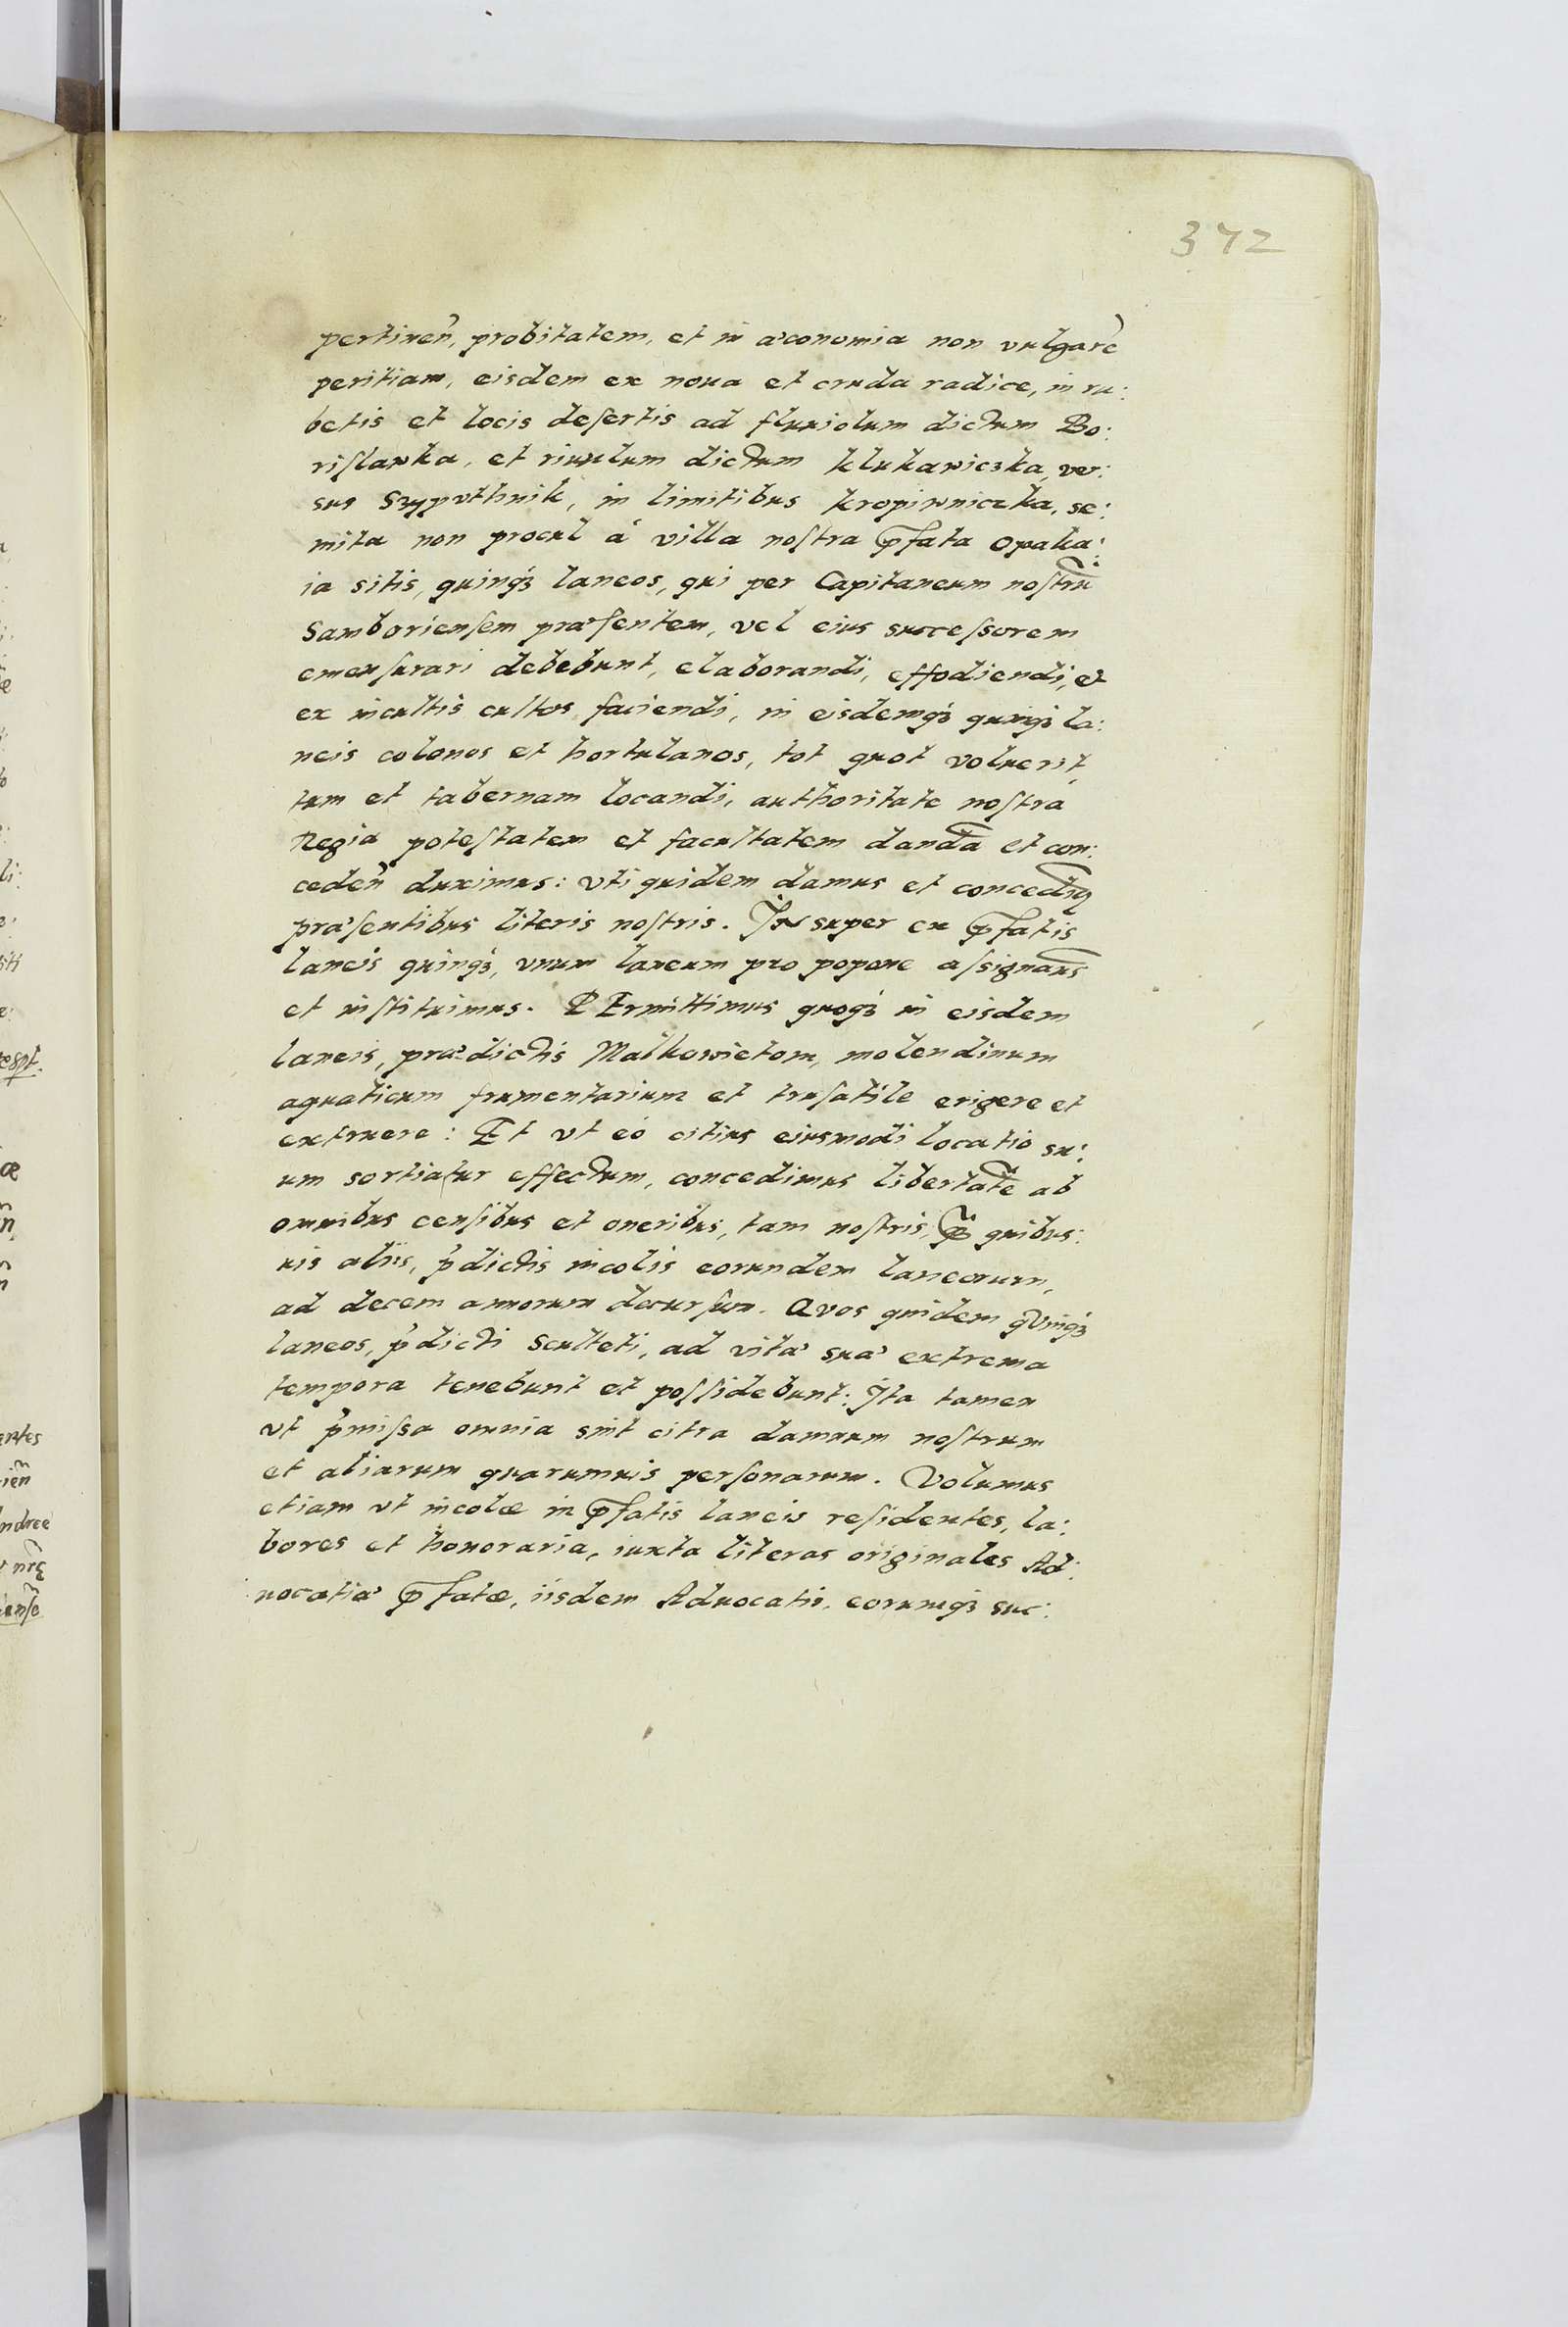 372
pertinen̄, probitatem, et in œconomia non vulgarē
peritiam, eisdem ex noua et cruda radice, in ru:
betis et locis desertis ad fluuiolum dictum Bo:
rislawka, et riuulum dictum Klukawiczka, ver:
sus Szypvthnik, in limitibus Kropiwniczka, se:
mita non procul á villa nostra p̄fata Opaka:
ia sitis, quinq3 laneos, qui per Capitaneum nostrū
Samboriensem præsentem, vel eius successorem
emensurari debebunt, elaborandi, effodiendi, et
ex incultis cultos faciendi, in eisdemq3 quinq3 la:
neis colonos et hortulanos, tot quot voluerit,
tum et tabernam locandi, authoritate nostra
Regia potestatem et facultatem dandā et con:
ceden̄ duximus: vti quidem damus et concedim9
præsentibus literis nostris. INsuper ex p̄fatis
laneis quinq3, vnum laneum pro popone assignam̄s
et instituimus. PErmittimus quoq3 in eisdem
laneis, prædictis Malkowietom, molendinum
aquaticum frumentarium et trusatile erigere et
extruere: Et vt eò citius eiusmodi locatio su:
um sortiatur effectum, concedimus libertatē ab
omnibus censibus et oneribus, tam nostris, q̄ quibus:
uis aliis, p̄dictis incolis eorundem laneorum,
ad decem annorum decursum. Qvos quidem qVinq3
laneos, p̄dicti Sculteti, ad vitæ suæ extrema
tempora tenebunt et possidebunt: Ita tamen
vt p̄missa omnia sint citra damnum nostrum
et aliarum quarumuis personarum. Volumus
etiam vt incolæ in p̄fatis laneis residentes, la:
bores et honoraria, iuxta literas originales Ad:
uocatiæ p̄fatæ, iisdem Aduocatis, eorumq3 suc: